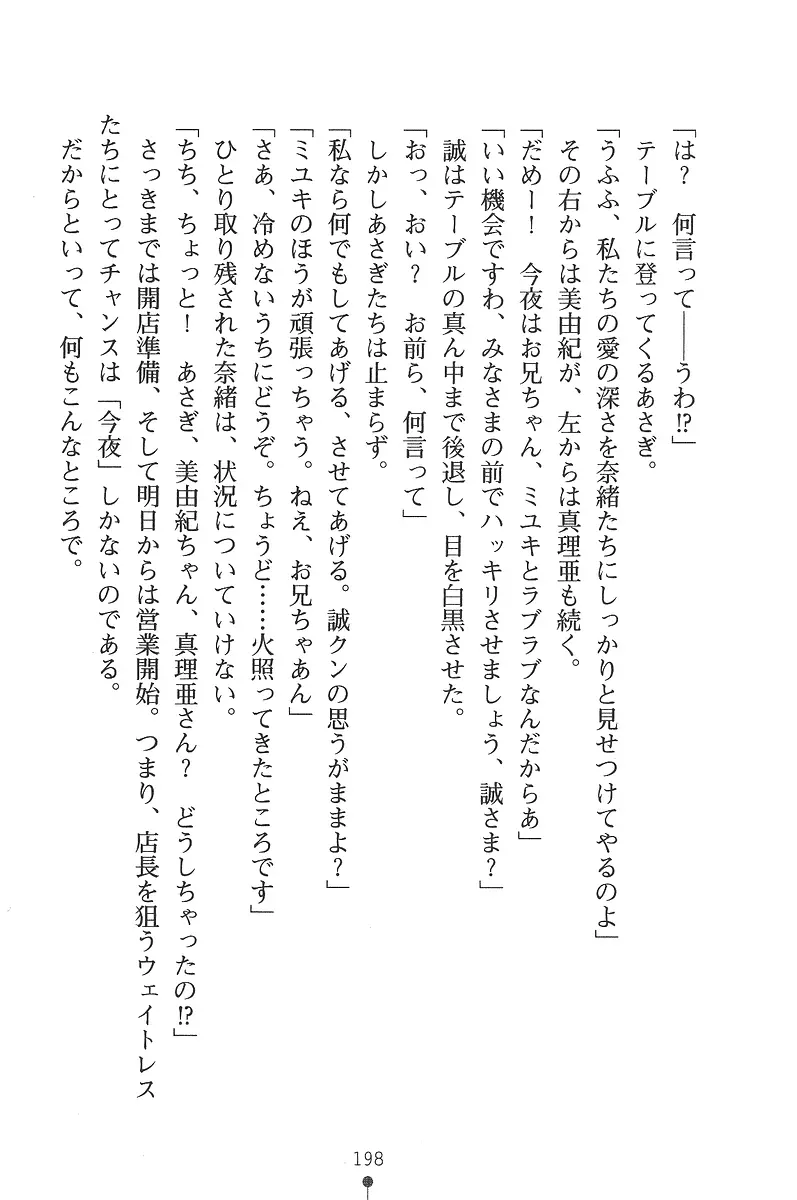 「は？　何言って――うわ!?」
テーブルに登ってくるあさぎ。
「うふふ、私たちの愛の深さを奈緒たちにしっかりと見せつけてやるのよ」
その右からは美由紀が、左からは真理亜も続く。
「だめー！　今夜はお兄ちゃん、ミユキとラブラブなんだからあ」
「いい機会ですわ、みなさまの前でハッキリさせましょう、誠さま？」
誠はテーブルの真ん中まで後退し、目を白黒させた。
「おっ、おい？　お前ら、何言って」
しかしあさぎたちは止まらず。
「私なら何でもしてあげる、させてあげる。誠クンの思うがままよ？」
「ミユキのほうが頑張っちゃう。ねえ、お兄ちゃあん」
「さあ、冷めないうちにどうぞ。ちょうど……火照ってきたところです」
ひとり取り残された奈緒は、状況についていけない。
「ちち、ちょっと！　あさぎ、美由紀ちゃん、真理亜さん？　どうしちゃったの!?」
さっきまでは開店準備、そして明日からは営業開始。つまり、店長を狙うウェイトレス
たちにとってチャンスは「今夜」しかないのである。
だからといって、何もこんなところで。
198